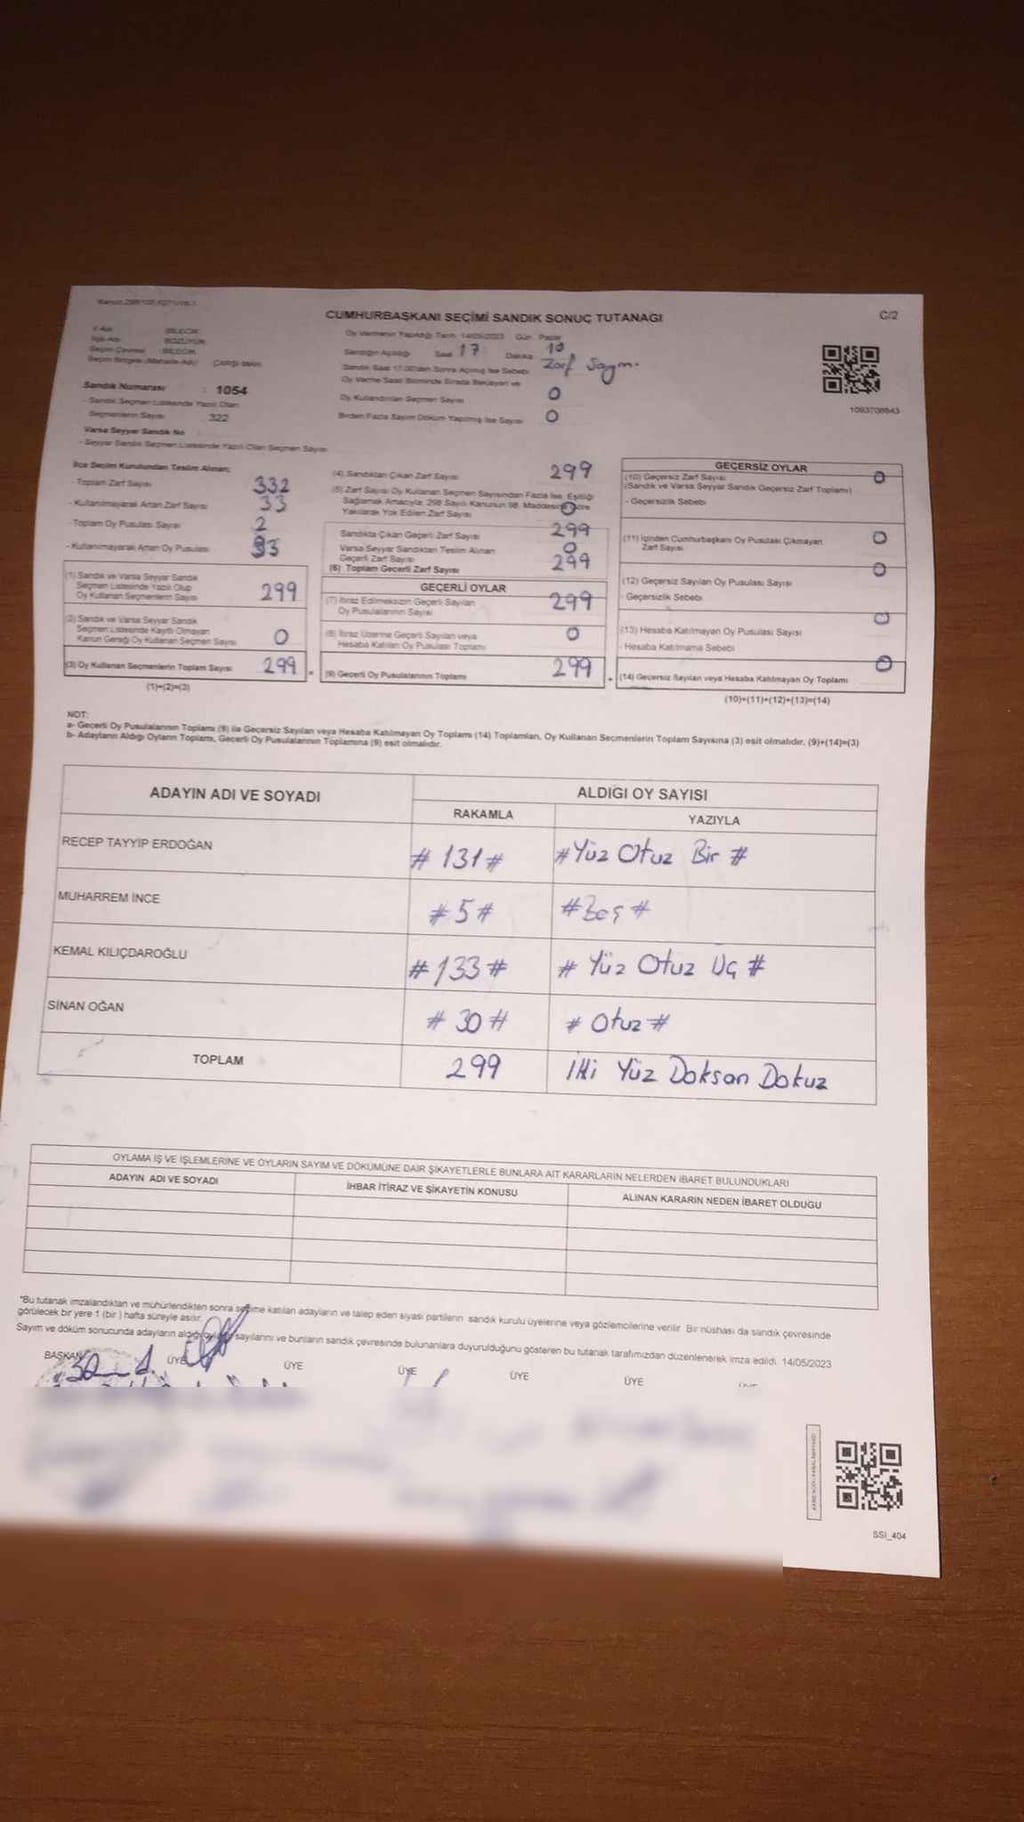 CUMHURBAŞKANI SEÇİMİ SANDIK SONUÇ TUTANAĞI
C/2
İl Adı : BİLECİK
İlçe Adı : BOZÜYÜK
Seçim Çevresi : BİLECİK
Seçim Bölgesi (Mahalle Adı) : ÇARŞI MAH.
Sandık Numarası : 1054
- Sandık Seçmen Listesinde Yazılı Olan
Seçmenlerin Sayısı 322
Varsa Seyyar Sandık No
- Seyyar Sandık Seçmen Listesinde Yazılı Olan Seçmen Sayısı
Oy Vermenin Yapıldığı Tarih 14/05/2023 Gün Pazar
Sandığın Açıldığı Saat 17 Dakika 10
Sandık Saat 17.00'den Sonra Açılmış İse Sebebi Zarf Sayım.
Oy Verme Saati Bitiminde Sırada Bekleyen ve
Oy Kullandırılan Seçmen Sayısı 0
Birden Fazla Sayım Döküm Yapılmış İse Sayısı 0
1093708843
İlçe Seçim Kurulundan Teslim Alınan;
- Toplam Zarf Sayısı 332
- Kullanılmayarak Artan Zarf Sayısı 33
- Toplam Oy Pusulası Sayısı 2
- Kullanılmayarak Artan Oy Pusulası
(1) Sandık ve Varsa Seyyar Sandık
Seçmen Listesinde Yazılı Olup
Oy Kullanan Seçmenlerin Sayısı 299
(2) Sandık ve Varsa Seyyar Sandık
Seçmen Listesinde Kaydı Olmayan
Kanun Gereği Oy Kullanan Seçmen Sayısı 0
(3) Oy Kullanan Seçmenlerin Toplam Sayısı 299
(1)+(2)=(3)
(4) Sandıktan Çıkan Zarf Sayısı 299
(5) Zarf Sayısı Oy Kullanan Seçmen Sayısından Fazla İse, Eşitliği
Sağlamak Amacıyla; 298 Sayılı Kanunun 98. Maddesine Göre
Yakılarak Yok Edilen Zarf Sayısı 0
Sandıkta Çıkan Geçerli Zarf Sayısı 299
Varsa Seyyar Sandıktan Teslim Alınan
Geçerli Zarf Sayısı 0
(6) Toplam Geçerli Zarf Sayısı 299
GEÇERLİ OYLAR
(7) İtiraz Edilmeksizin Geçerli Sayılan
Oy Pusulalarının Sayısı 299
(8) İtiraz Üzerine Geçerli Sayılan veya
Hesaba Katılan Oy Pusulası Toplamı 0
(9) Geçerli Oy Pusulalarının Toplamı 299
GEÇERSİZ OYLAR
(10) Geçersiz Zarf Sayısı 0
(Sandık ve Varsa Seyyar Sandık Geçersiz Zarf Toplamı)
- Geçersizlik Sebebi
(11) İçinden Cumhurbaşkanı Oy Pusulası Çıkmayan
Zarf Sayısı 0
(12) Geçersiz Sayılan Oy Pusulası Sayısı 0
- Geçersizlik Sebebi
(13) Hesaba Katılmayan Oy Pusulası Sayısı 0
- Hesaba Katılmama Sebebi
(14) Geçersiz Sayılan veya Hesaba Katılmayan Oy Toplamı 0
(10)+(11)+(12)+(13)=(14)
NOT:
a- Geçerli Oy Pusulalarının Toplamı (9) ile Geçersiz Sayılan veya Hesaba Katılmayan Oy Toplamı (14) Toplamları, Oy Kullanan Seçmenlerin Toplam Sayısına (3) eşit olmalıdır. (9)+(14)=(3)
b- Adayların Aldığı Oyların Toplamı, Geçerli Oy Pusulalarının Toplamına (9) eşit olmalıdır.
ADAYIN ADI VE SOYADI
ALDIĞI OY SAYISI
RAKAMLA YAZIYLA
RECEP TAYYİP ERDOĞAN # 131 # # Yüz Otuz Bir #
MUHARREM İNCE # 5 # # Beş #
KEMAL KILIÇDAROĞLU # 133 # # Yüz Otuz Üç #
SİNAN OĞAN # 30 # # Otuz #
TOPLAM 299 İki Yüz Doksan Dokuz
OYLAMA İŞ VE İŞLEMLERİNE VE OYLARIN SAYIM VE DÖKÜMÜNE DAİR ŞİKAYETLERLE BUNLARA AİT KARARLARIN NELERDEN İBARET BULUNDUKLARI
ADAYIN ADI VE SOYADI İHBAR İTİRAZ VE ŞİKAYETİN KONUSU ALINAN KARARIN NEDEN İBARET OLDUĞU
*Bu tutanak imzalandıktan ve mühürlendikten sonra seçime katılan adayların ve talep eden siyasi partilerin sandık kurulu üyelerine veya gözlemcilerine verilir. Bir nüshası da sandık çevresinde
görülecek bir yere 1 (bir ) hafta süreyle asılır.
Sayım ve döküm sonucunda adayların aldığı oyların sayılarını ve bunların sandık çevresinde bulunanlara duyurulduğunu gösteren bu tutanak tarafımızdan düzenlenerek imza edildi. 14/05/2023
BAŞKAN ÜYE ÜYE ÜYE ÜYE ÜYE
SSI_404